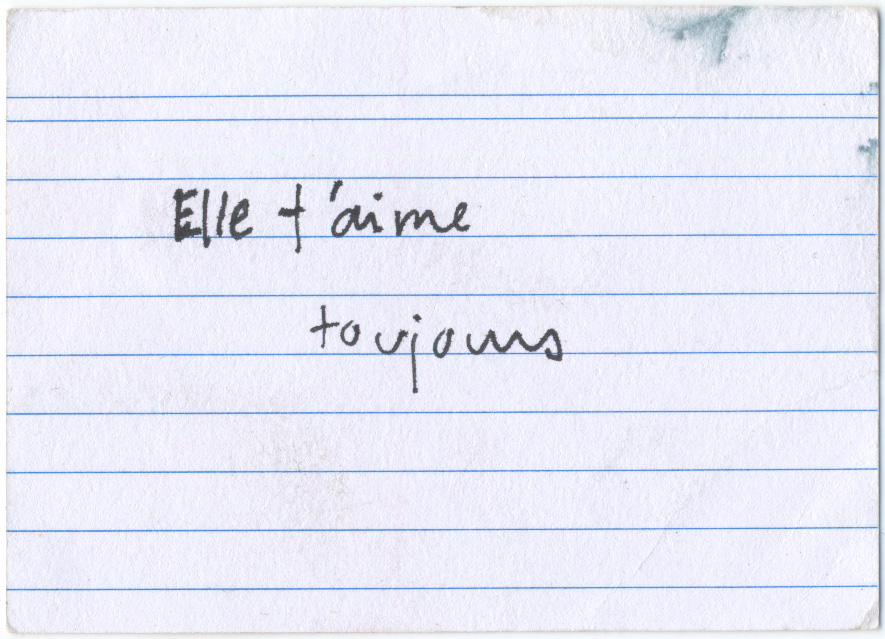 Elle t'aime
toujours